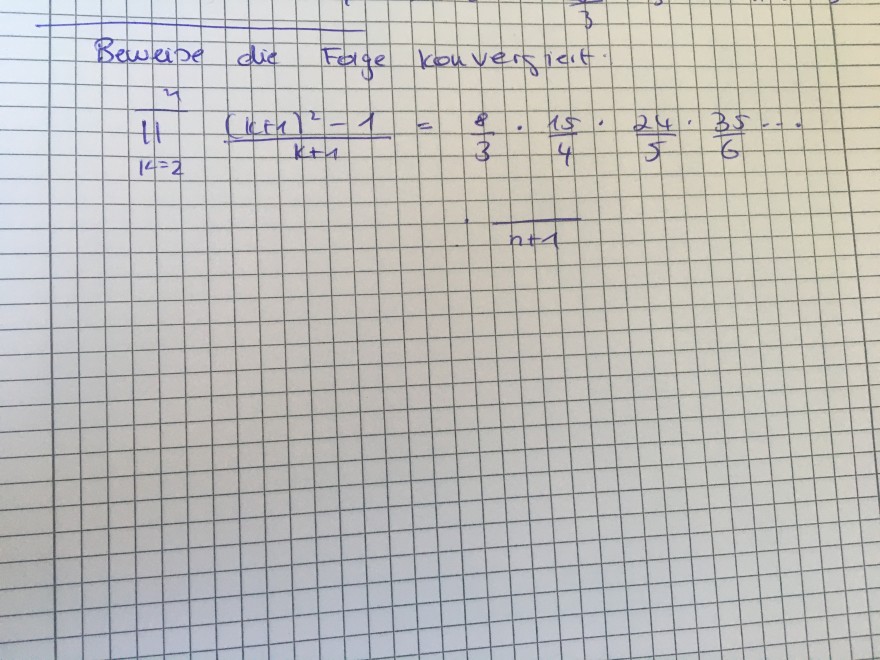 3
Beweise die Folge konvergiert.
n
∏ (k+1)² - 1 / k+1 = 8/3 · 15/4 · 24/5 · 35/6 ...
k=2
· / n+1